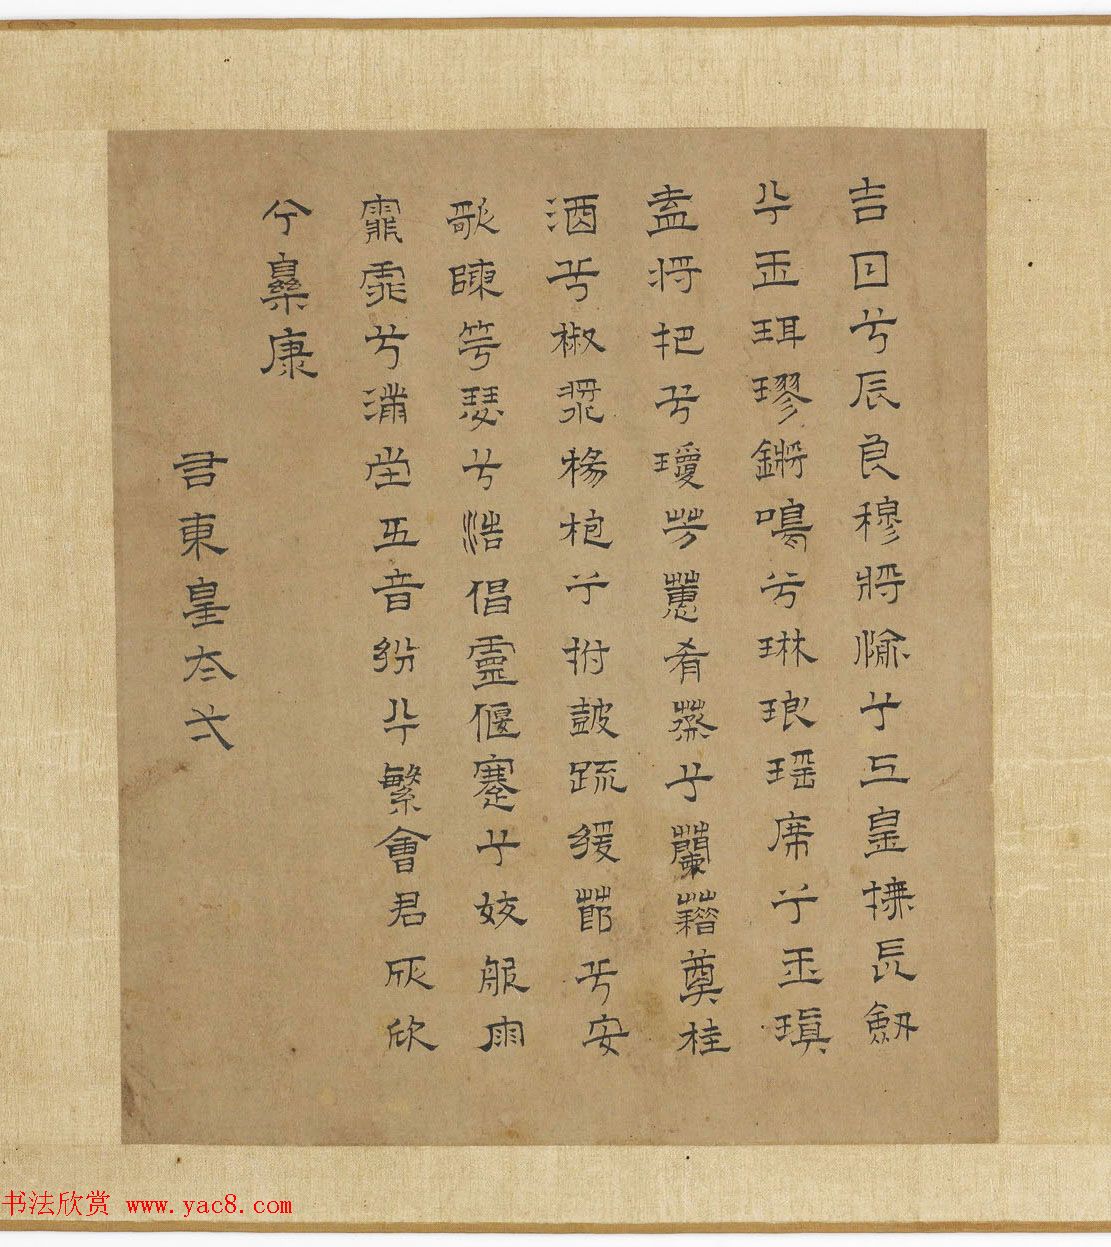 吉日兮辰良穆将愉兮上皇撫長劒
兮玉珥璆鏘鳴兮琳琅瑶席兮玉瑱
盍将把兮瓊芳蕙肴蒸兮蘭藉奠桂
酒兮椒漿揚枹兮拊鼓疏緩節兮安
歌陳竽瑟兮浩倡靈偃蹇兮姣服雨
霏霏兮滿堂五音紛兮繁會君欣欣
兮樂康
右東皇太弌
书法欣赏 www.yac8.com